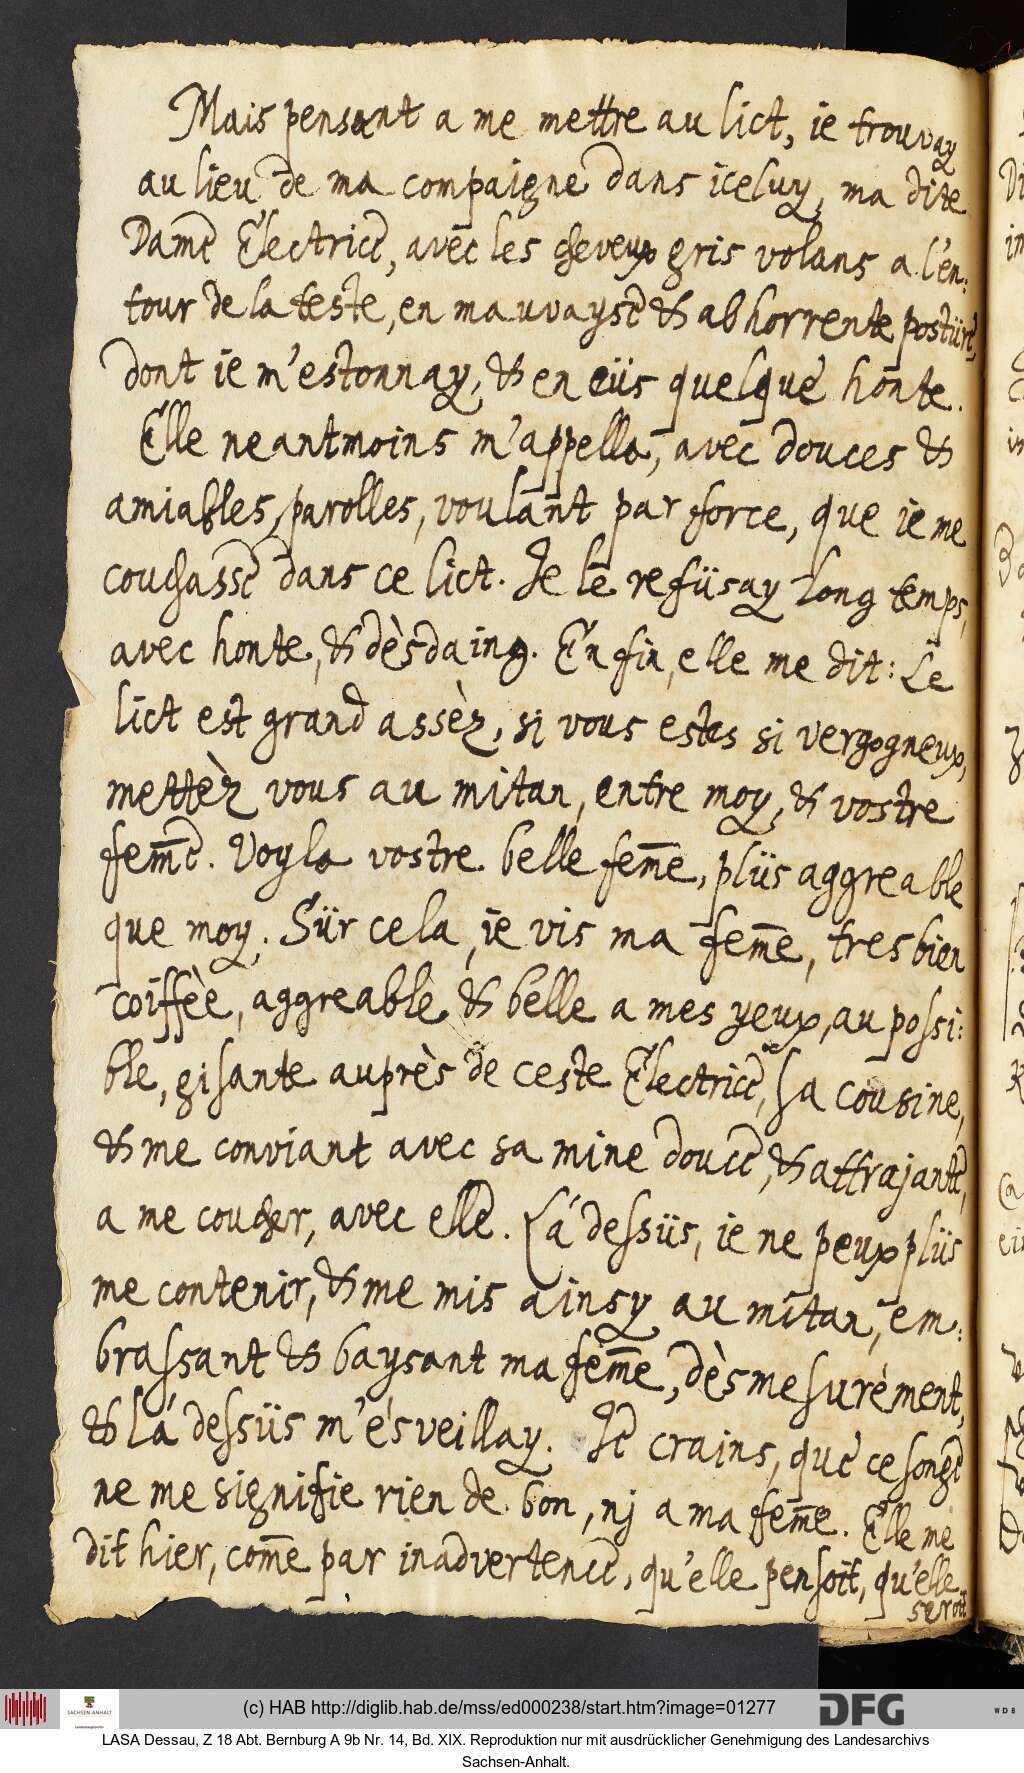 Mais pensant a me mettre au lict, ie trouvay
au lieu de ma compaigne dans iceluy, ma dite
Dame Electrice, avec les cheveux gris volans a l'en:
tour de la teste, en mauvayse & abhorrente postüre,
dont ie m'estonnay, & en eüs quelque honte.
Elle neantmoins m'appella, avec douces &
amiables, parolles, voulant par force, que ie me
couchasse dans ce lict. Je le refüsay long temps,
avec honte, & dèsdaing. En fin, elle me dit: Le
lict est grand assèz, si vous estes si vergogneux,
mettèz vous au mitan, entre moy, & vostre
fem̅e. Voyla vostre belle fem̅e, plüs aggreable
que moy. Sür cela, ie vis ma fem̅e, tres bien
coiffèe, aggreable & belle a mes yeux, au possi:
ble, gisante auprès de ceste Electrice, sa cousine,
& me conviant avec sa mine douce, & attrajante,
a me coucher, avec elle. Lá dessüs, ie ne peux plüs
me contenir, & me mis ainsy au mitan, em:
brassant & baysant ma fem̅e, dèsmesurément,
& lá dessüs m'ésveillay. Je crains, que ce songe
ne me signifie rien de bon, nj a ma fem̅e. Elle me
dit hier, com̅e par inadvertence, qu'elle pensoit, qu'elle
seroit
(c) HAB http://diglib.hab.de/mss/ed000238/start.htm?image=01277
SACHSEN-ANHALT
DFG
WDB
LASA Dessau, Z 18 Abt. Bernburg A 9b Nr. 14, Bd. XIX. Reproduktion nur mit ausdrücklicher Genehmigung des Landesarchivs
Sachsen-Anhalt.